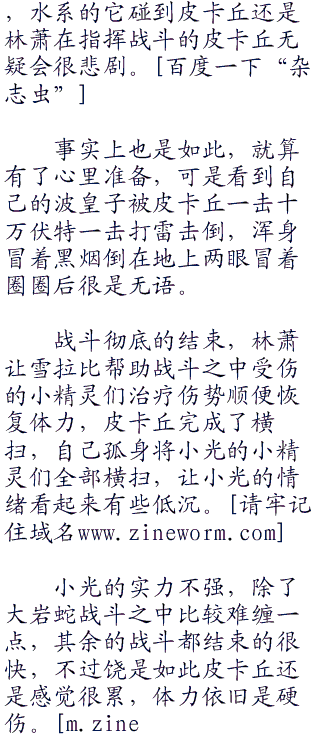 ，水系的它碰到皮卡丘还是
林萧在指挥战斗的皮卡丘无
疑会很悲剧。[百度一下“杂
志虫”]
事实上也是如此，就算
有了心里准备，可是看到自
己的波皇子被皮卡丘一击十
万伏特一击打雷击倒，浑身
冒着黑烟倒在地上两眼冒着
圈圈后很是无语。
战斗彻底的结束，林萧
让雪拉比帮助战斗之中受伤
的小精灵们治疗伤势顺便恢
复体力，皮卡丘完成了横
扫，自己孤身将小光的小精
灵们全部横扫，让小光的情
绪看起来有些低沉。[请牢记
住域名www.zineworm.com]
小光的实力不强，除了
大岩蛇战斗之中比较难缠一
点，其余的战斗都结束的很
快，不过饶是如此皮卡丘还
是感觉很累，体力依旧是硬
伤。[m.zine